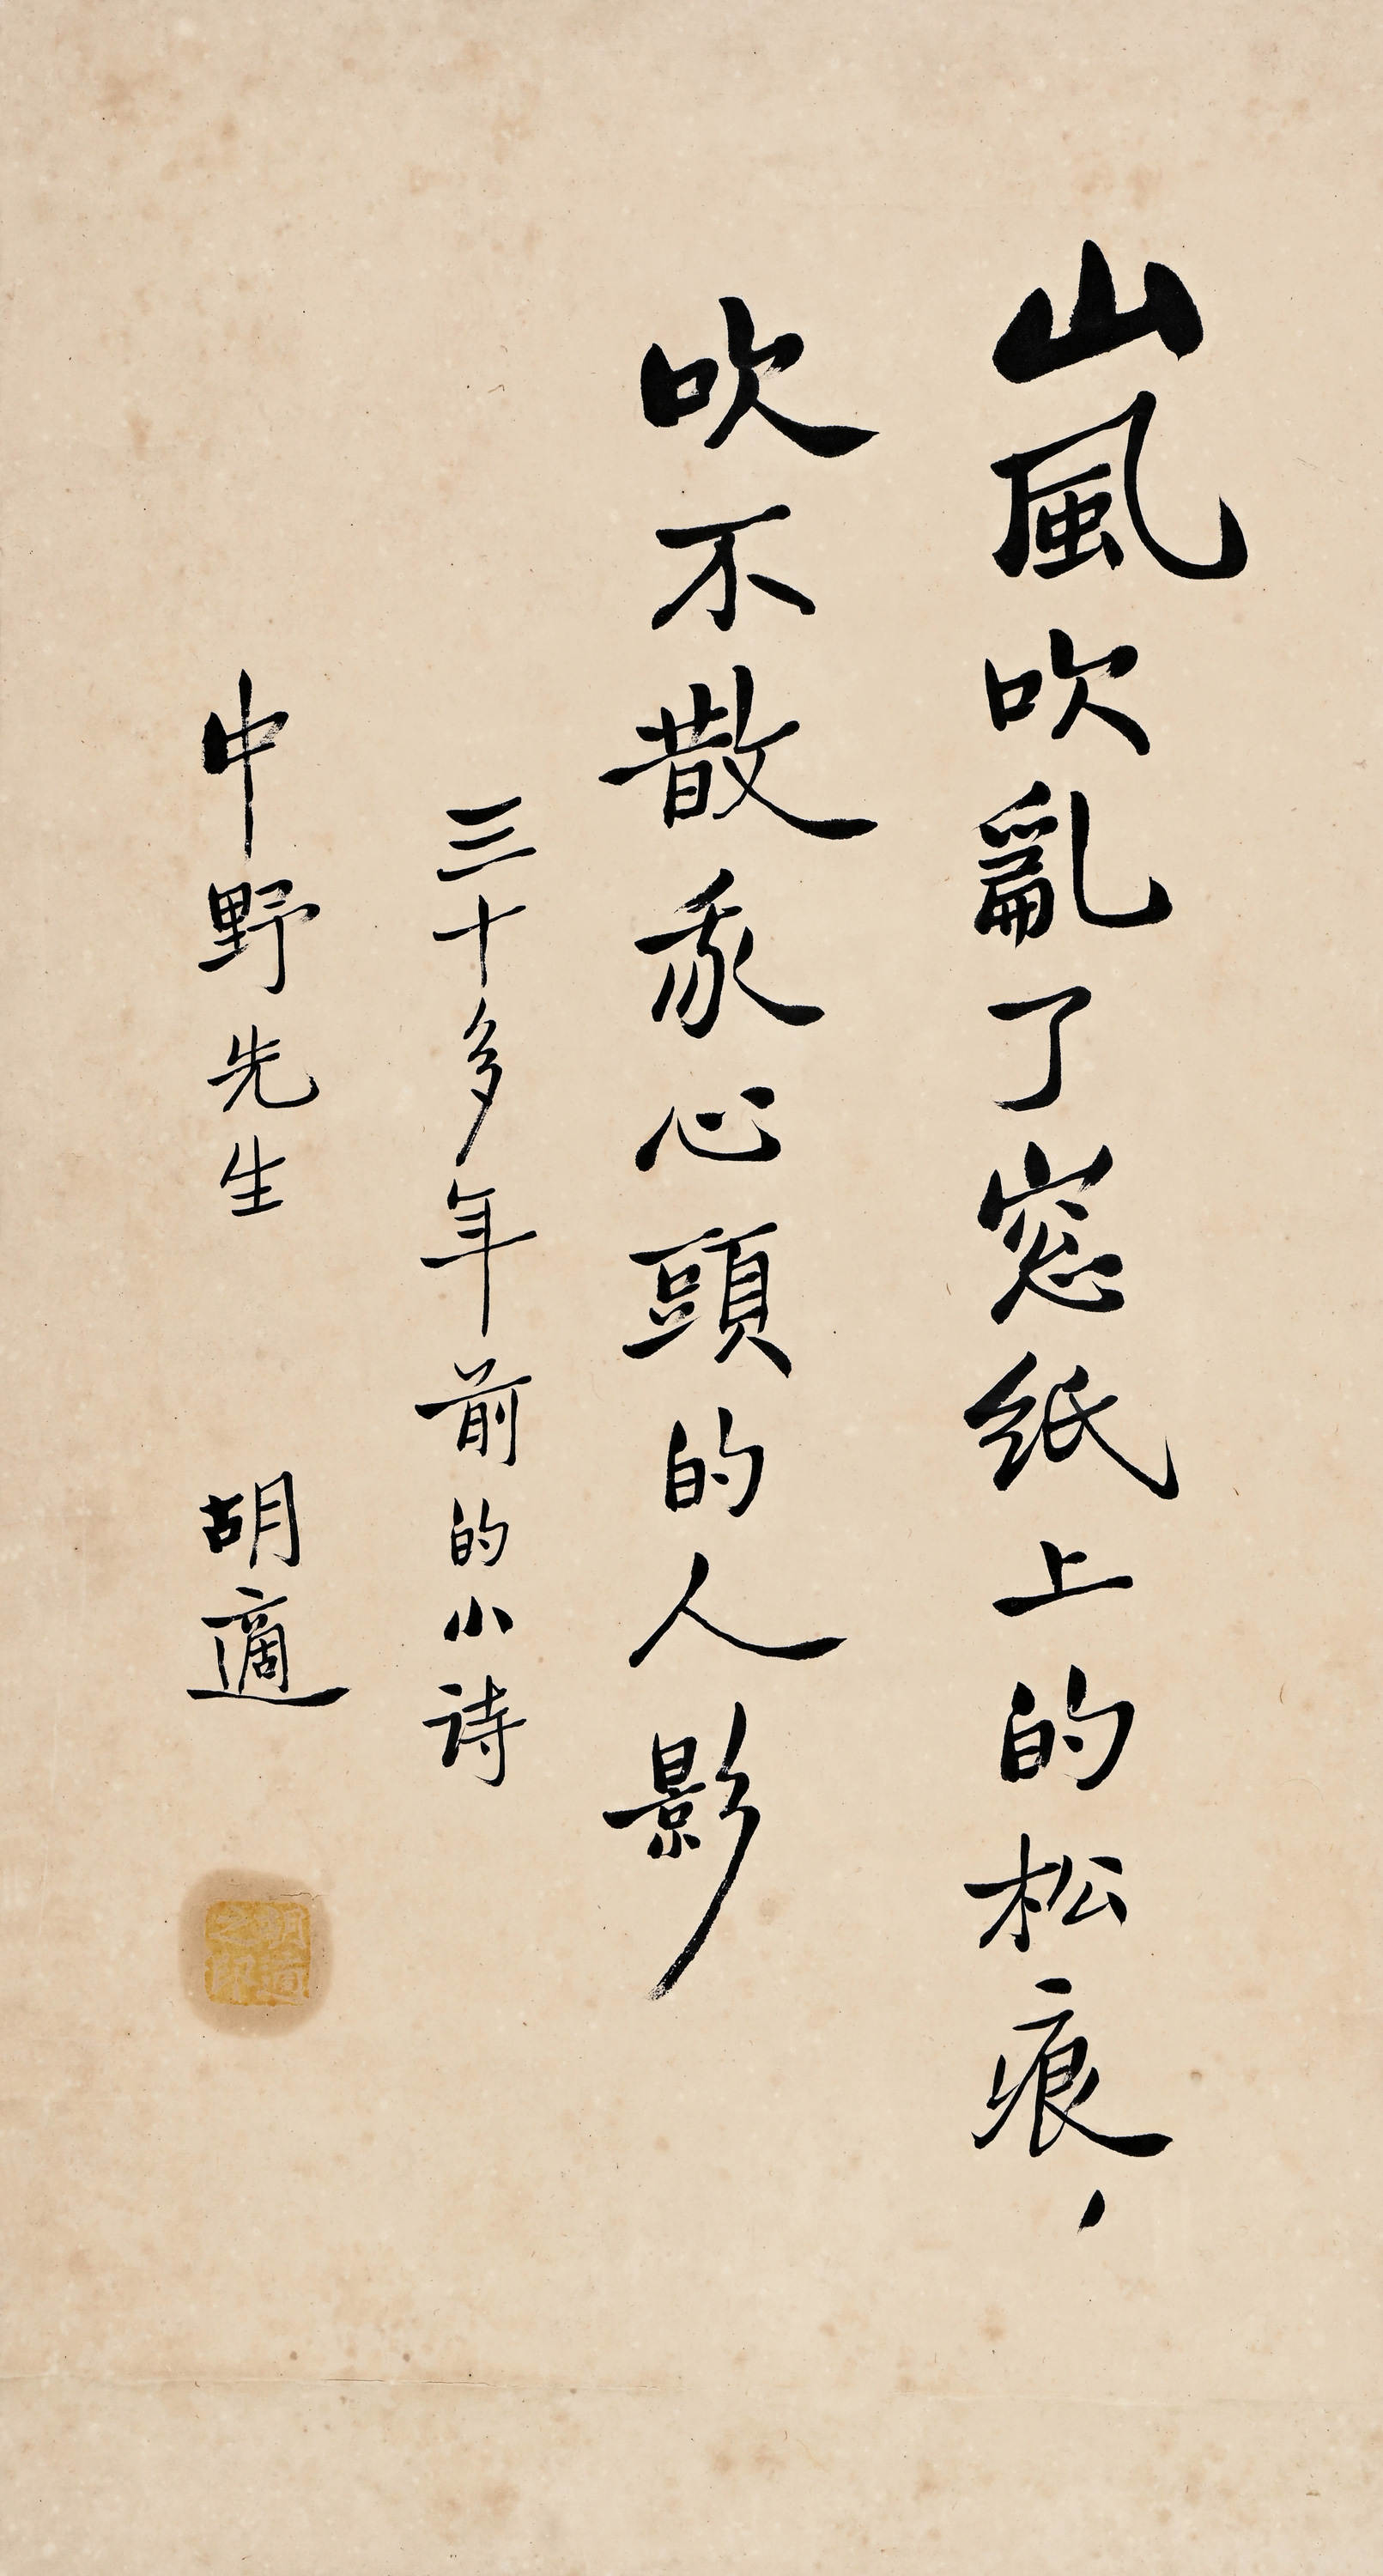 山風吹亂了窓紙上的松痕，
吹不散我心頭的人影
三十多年前的小詩
中野先生 胡適
胡適之印